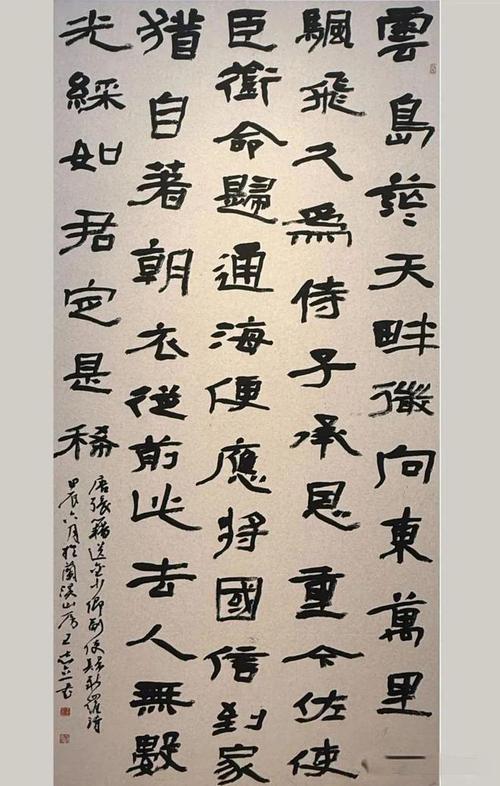 雲島茫天畔微向東萬里一
颿飛久爲侍子承恩重今佐使
臣銜命歸通海便應將國信到家
猶自著朝衣從前此去人無數
光綵如君定是稀
唐張籍送金少卿副使歸新羅詩
甲辰六月於蘭溪山房王